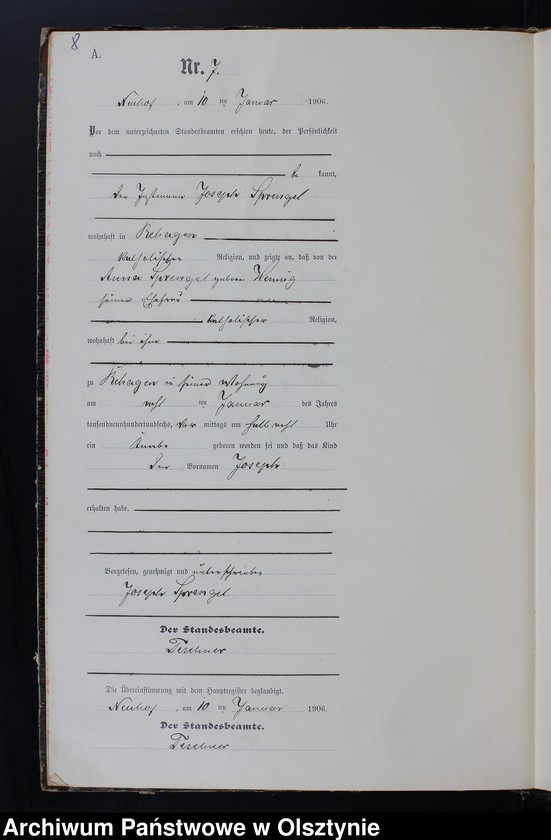 8
A.
Nr. 7.
Neuhof, am 10 ten Januar 1906.
Vor dem unterzeichneten Standesbeamten erschien heute, der Persönlichkeit
nach
be kannt,
der Instmann Joseph Sprengel
wohnhaft in Rehagen
katholischer Religion, und zeigte an, daß von der
Anna Sprengel geboren Hennig
seiner Ehefrau
katholischer Religion,
wohnhaft bei ihm
zu Rehagen in seiner Wohnung
am acht ten Januar des Jahres
tausendneunhundertundsechs, Vor mittags um halb acht Uhr
ein Knabe geboren worden sei und daß das Kind
den Vornamen Joseph
erhalten habe.
Vorgelesen, genehmigt und unterschrieben
Joseph Sprengel.
Der Standesbeamte.
Teschner
Die Übereinstimmung mit dem Hauptregister beglaubigt.
Neuhof, am 10 ten Januar 1906.
Der Standesbeamte.
Teschner
Archiwum Państwowe w Olsztynie